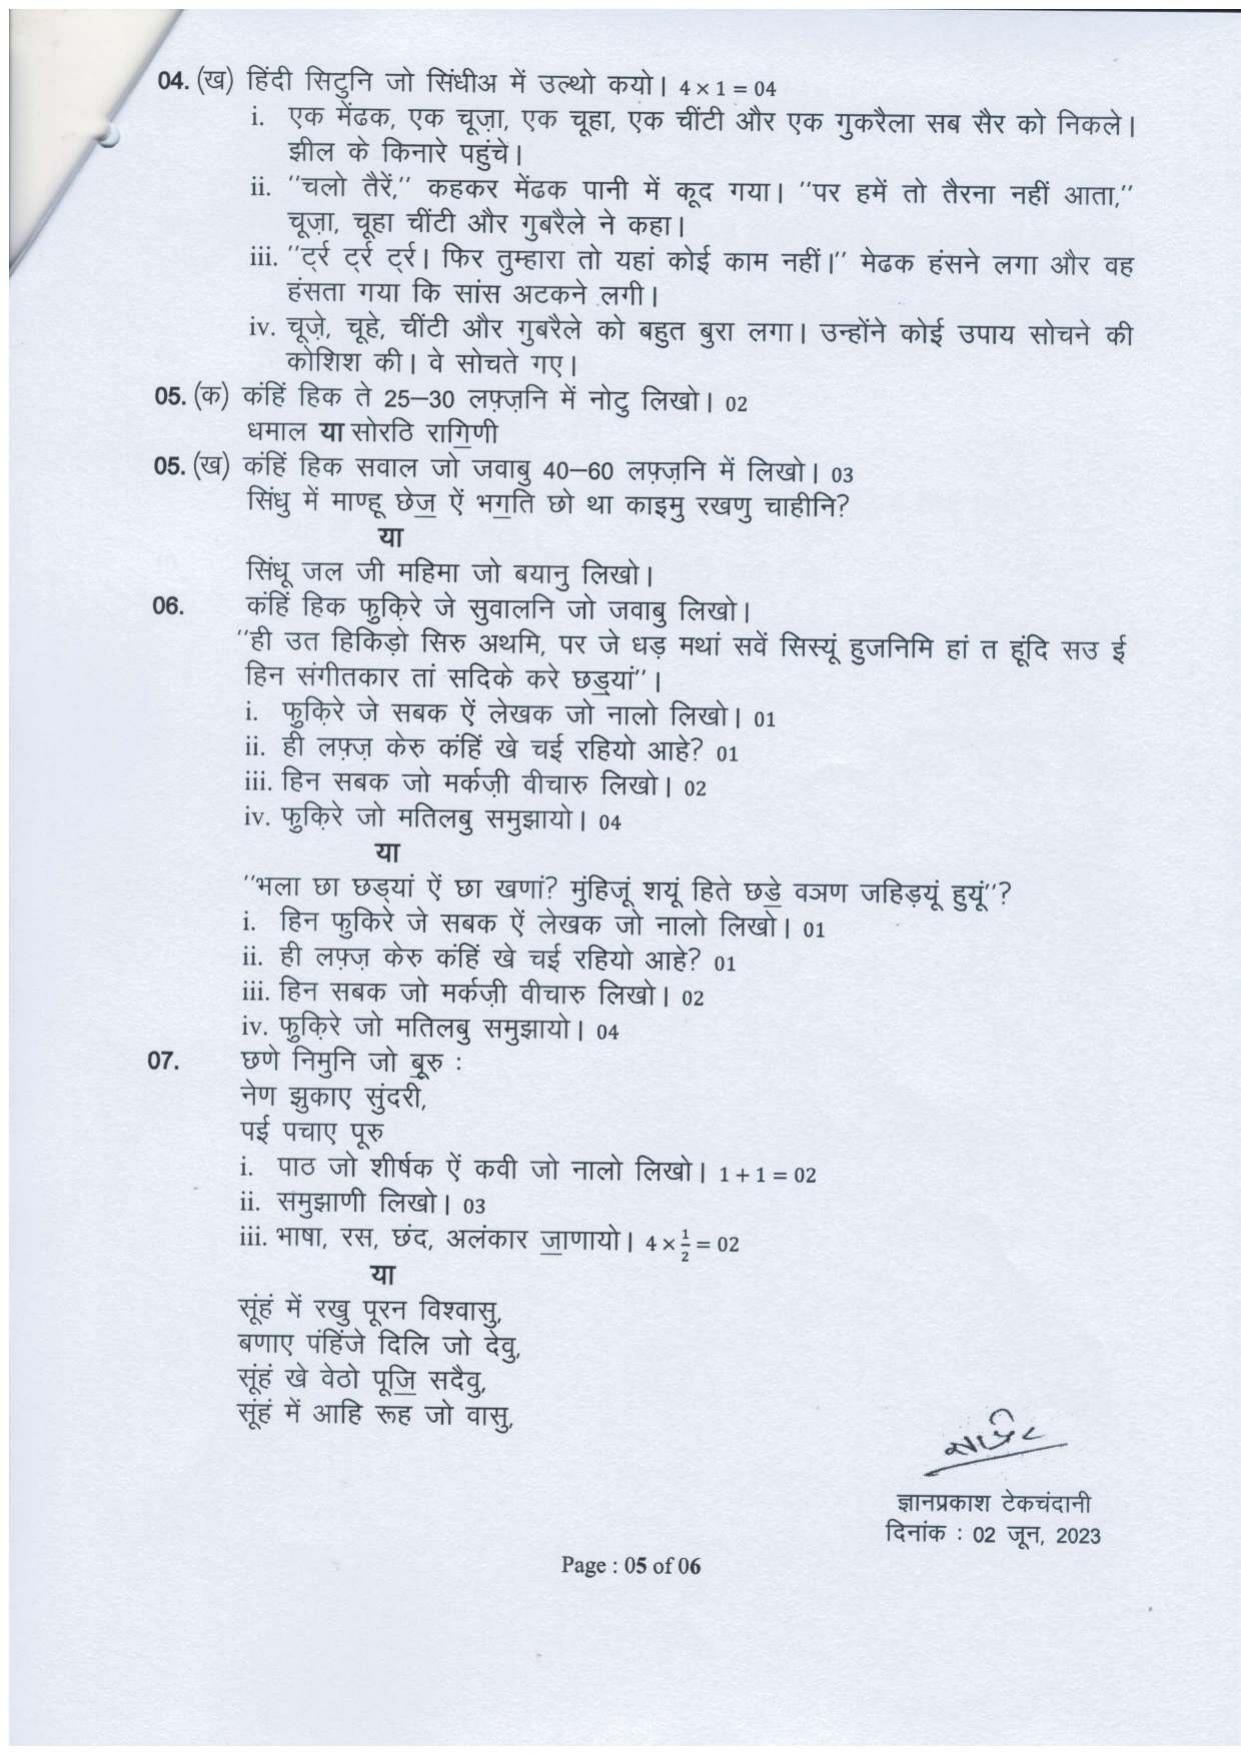 04. (ख) हिंदी सिटुनि जो सिंधीअ में उल्थो कयो। 4 × 1 = 04
i. एक मेंढक, एक चूज़ा, एक चूहा, एक चींटी और एक गुकरैला सब सैर को निकले।
झील के किनारे पहुंचे।
ii. ''चलो तैरें,'' कहकर मेंढक पानी में कूद गया। ''पर हमें तो तैरना नहीं आता,''
चूज़ा, चूहा चींटी और गुबरैले ने कहा।
iii. ''ट्र्र ट्र्र ट्र्र। फिर तुम्हारा तो यहां कोई काम नहीं।'' मेढक हंसने लगा और वह
हंसता गया कि सांस अटकने लगी।
iv. चूज़े, चूहे, चींटी और गुबरैले को बहुत बुरा लगा। उन्होंने कोई उपाय सोचने की
कोशिश की। वे सोचते गए।
05. (क) कंहिं हिक ते 25–30 लफ़्ज़नि में नोटु लिखो। 02
धमाल या सोरठि रागि॒णी
05. (ख) कंहिं हिक सवाल जो जवाबु 40–60 लफ़्ज़नि में लिखो। 03
सिंधु में माण्हू छेज॒ ऐं भग॒ति छो था काइमु रखणु चाहीनि?
या
सिंधू जल जी महिमा जो बयानु लिखो।
06. कंहिं हिक फुक़िरे जे सुवालनि जो जवाबु लिखो।
''ही उत हिकिड़ो सिरु अथमि, पर जे धड़ मथां सवें सिस्यूं हुजनिमि हां त हूंदि सउ ई
हिन संगीतकार तां सदिके करे छड॒यां''।
i. फुक़िरे जे सबक ऐं लेखक जो नालो लिखो। 01
ii. ही लफ़्ज़ केरु कंहिं खे चई रहियो आहे? 01
iii. हिन सबक जो मर्कज़ी वीचारु लिखो। 02
iv. फुक़िरे जो मतिलबु समुझायो। 04
या
''भला छा छड्यां ऐं छा खणां? मुंहिजूं शयूं हिते छडे॒ वञण जहिड़यूं हुयूं''?
i. हिन फुकिरे जे सबक ऐं लेखक जो नालो लिखो। 01
ii. ही लफ़्ज़ केरु कंहिं खे चई रहियो आहे? 01
iii. हिन सबक जो मर्कज़ी वीचारु लिखो। 02
iv. फुक़िरे जो मतिलबु समुझायो। 04
07. छणे निमुनि जो बू॒रु :
नेण झुकाए सुंदरी,
पई पचाए पूरु
i. पाठ जो शीर्षक ऐं कवी जो नालो लिखो। 1 + 1 = 02
ii. समुझाणी लिखो। 03
iii. भाषा, रस, छंद, अलंकार जा॒णायो। 4 × 1/2 = 02
या
सूंहं में रखु पूरन विश्वासु,
बणाए पंहिंजे दिलि जो देवु,
सूंहं खे वेठो पूजि॒ सदैवु,
सूंहं में आहि रूह जो वासु,
ज्ञानप्रकाश टेकचंदानी
दिनांक : 02 जून, 2023
Page : 05 of 06